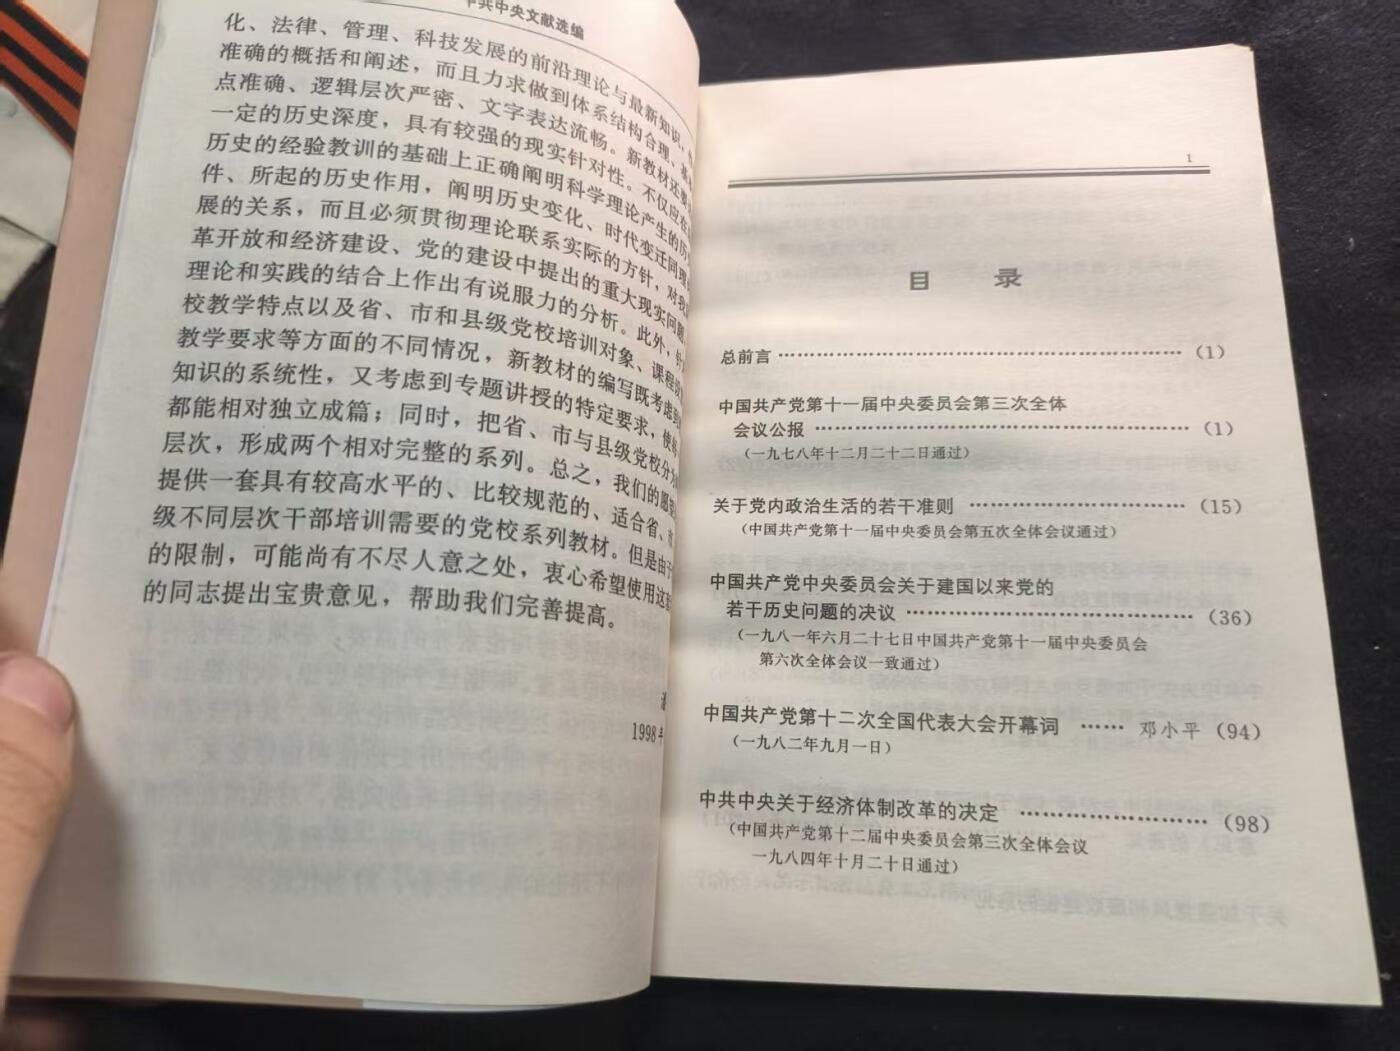 中共中央文献选编
化、法律、管理、科技发展的前沿理论与最新知识，
准确的概括和阐述，而且力求做到体系结构合理、
点准确、逻辑层次严密、文字表达流畅。新教材还要
一定的历史深度，具有较强的现实针对性。不仅应在
历史的经验教训的基础上正确阐明科学理论产生的历
件、所起的历史作用，阐明历史变化、时代变迁同理
展的关系，而且必须贯彻理论联系实际的方针，对我
革开放和经济建设、党的建设中提出的重大现实问题
理论和实践的结合上作出有说服力的分析。此外，针
校教学特点以及省、市和县级党校培训对象、课程设
教学要求等方面的不同情况，新教材的编写既考虑到
知识的系统性，又考虑到专题讲授的特定要求，使
都能相对独立成篇；同时，把省、市与县级党校分为
层次，形成两个相对完整的系列。总之，我们的愿望
提供一套具有较高水平的、比较规范的、适合省、
级不同层次干部培训需要的党校系列教材。但是由于
的限制，可能尚有不尽人意之处，衷心希望使用这
的同志提出宝贵意见，帮助我们完善提高。
1998
1
目 录
总前言 …………………………………………………… （1）
中国共产党第十一届中央委员会第三次全体
会议公报 ………………………………………………… （1）
（一九七八年十二月二十二日通过）
关于党内政治生活的若干准则 ………………………… （15）
（中国共产党第十一届中央委员会第五次全体会议通过）
中国共产党中央委员会关于建国以来党的
若干历史问题的决议 …………………………………… （36）
（一九八一年六月二十七日中国共产党第十一届中央委员会
第六次全体会议一致通过）
中国共产党第十二次全国代表大会开幕词 …… 邓小平（94）
（一九八二年九月一日）
中共中央关于经济体制改革的决定 …………………… （98）
（中国共产党第十二届中央委员会第三次全体会议
一九八四年十月二十日通过）